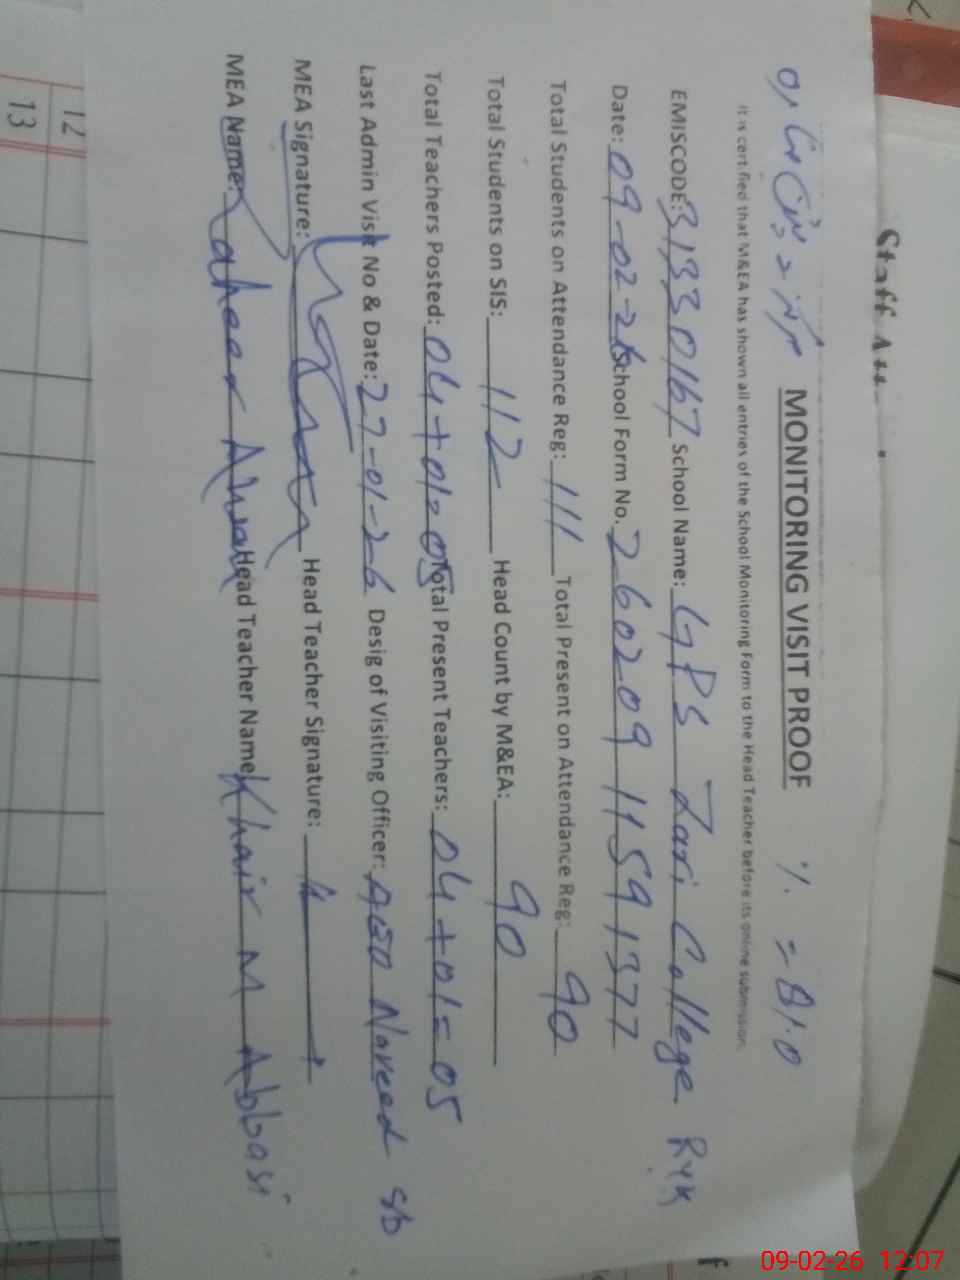 Staff Att
MONITORING VISIT PROOF %. = 81.0
It is certified that M&EA has shown all entries of the School Monitoring Form to the Head Teacher before its online submission.
EMISCODE: 31330167 School Name: GPS Zari College RYK
Date: 09-02-26 School Form No. 260209 1159 1377
Total Students on Attendance Reg: 111 Total Present on Attendance Reg: 90
Total Students on SIS: 112 Head Count by M&EA: 90
Total Teachers Posted: 04+01=05 Total Present Teachers: 04+01=05
Last Admin Visit No & Date: 27-01-26 Desig of Visiting Officer: AEO Naveed sb
MEA Signature: Head Teacher Signature:
MEA Name: Zaheer Head Teacher Name: Khair M Abbasi
12
13
09-02-26 12:07